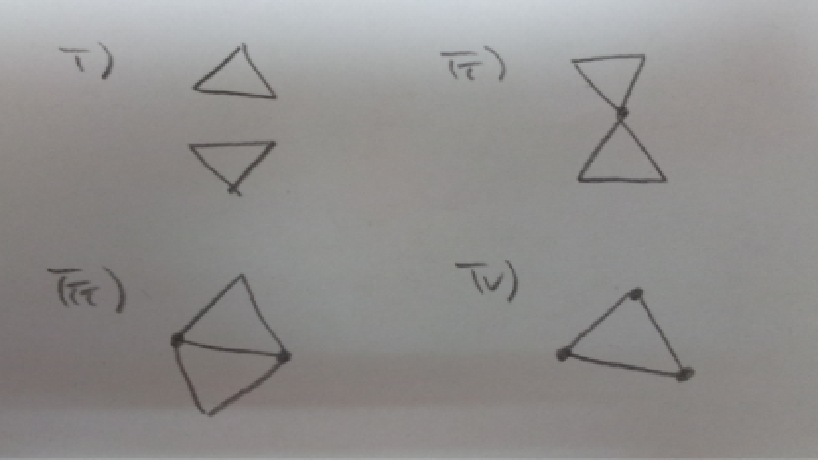 I)
II)
III)
IV)